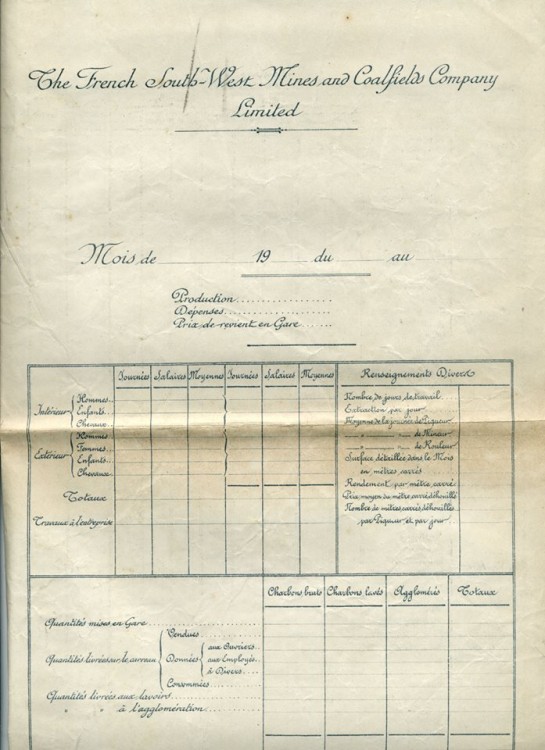 The French South-West Mines and Coalfields Company
Limited
Mois de 19 du au
Production
Dépenses
Prix de revient en Gare
Journées Salaires Moyennes Journées Salaires Moyennes Renseignements Divers
Intérieur Hommes
Enfants
Chevaux
Extérieur Hommes
Femmes
Enfants
Chevaux
Totaux
Travaux à l'entreprise
Nombre de jours de travail
Extraction par jour
Moyenne de la journée de Piqueur
" " de Mineur
" " de Rouleur
Surface déhouillée dans le Mois
en mètres carrés
Rendement par mètre carré
Prix moyen du mètre carré déhouillé
Nombre de mètres carrés déhouillés
par Piqueur et par jour
Charbons bruts Charbons lavés Agglomérés Totaux
Quantités mises en Gare
Quantités livrées sur le carreau Vendues
Données aux Ouvriers
aux Employés
à Divers
Consommées
Quantités livrées aux lavoirs
" " à l'agglomération